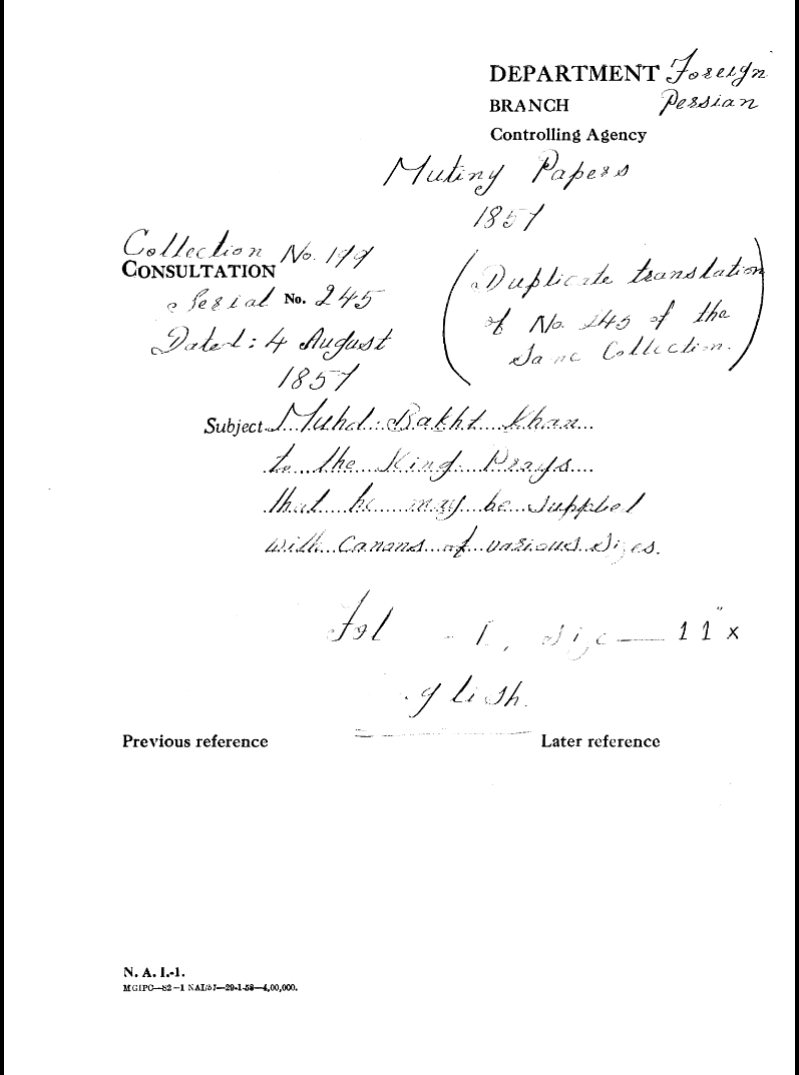 DEPARTMENT Foreign
BRANCH Persian
Controlling Agency
Mutiny Papers
1857
Collection No. 199
CONSULTATION
Serial No. 245
Dated: 4 August
1857
(Duplicate translation
of No. 245 of the
Same Collection.)
Subject Muhd: Bakht Khan
to the King. Prays
that he may be supplied
with Canons of various sizes.
Fol - 1, Size — 11" x
glish.
Previous reference
Later reference
N. A. I.-1.
MGIPC—S2—1 NAI/57—29-1-58—4,00,000.